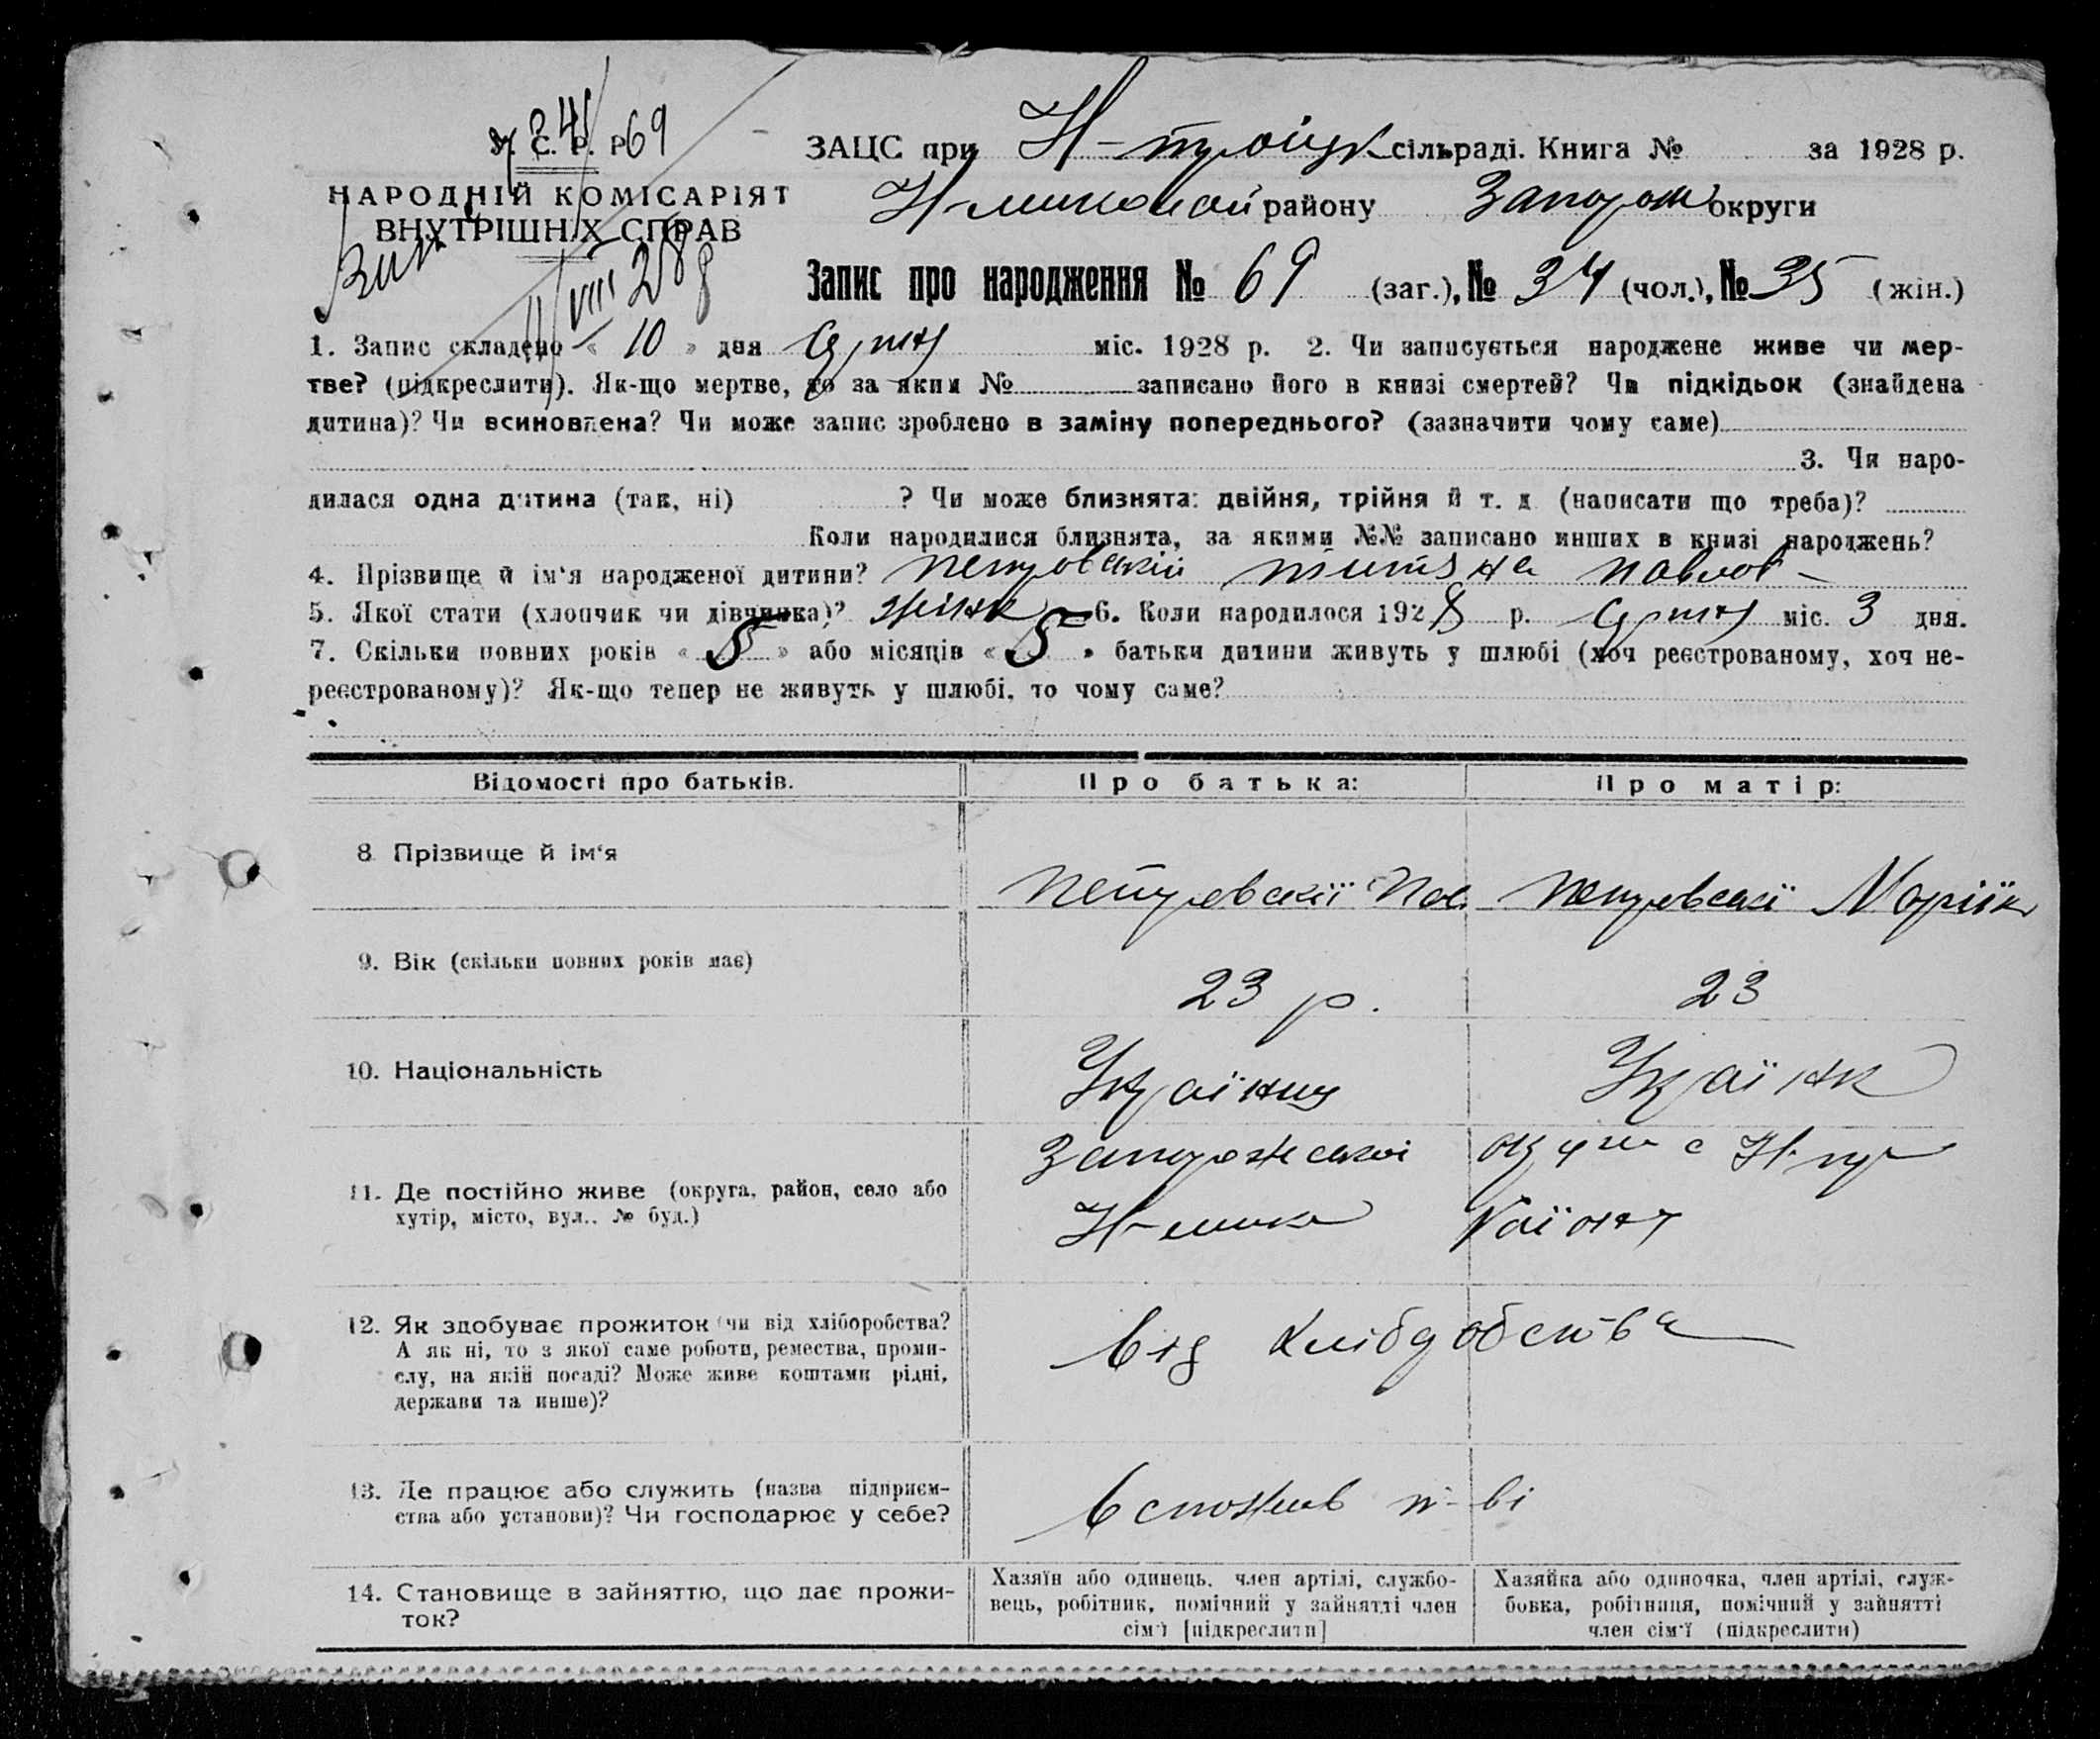 У. С. Р. Р. 69
ЗАЦС при Н-троіцк сільраді. Книга № за 1928 р.
НАРОДНІЙ КОМІСАРІЯТ
ВНУТРІШНІХ СПРАВ
району Запорож округи
Запис про народження № 69 (заг.), № 34 (чол.), № 35 (жін.)
1. Запис складено « 10 » дня Серпня міс. 1928 р. 2. Чи записується народжене живе чи мер-
тве? (підкреслити). Як-що мертве, то за яким № записано його в книзі смертей? Чи підкідьок (знайдена
дитина)? Чи всиновлена? Чи може запис зроблено в заміну попереднього? (зазначити чому саме)
3. Чи наро-
дилася одна дитина (так, ні) ? Чи може близнята: двійня, трійня й т. д. (написати що треба)?
Коли народилися близнята, за якими №№ записано инших в книзі народжень?
4. Прізвище й ім'я народженої дитини? Петровській Титяна Павлов
5. Якої стати (хлопчик чи дівчинка)? жінк 6. Коли народилося 1928 р. Серпня міс. 3 дня.
7. Скільки повних років « 5 » або місяців « 5 » батьки дитини живуть у шлюбі (хоч реєстрованому, хоч не-
реєстрованому)? Як-що тепер не живуть у шлюбі, то чому саме?
Відомості про батьків. Про батька: Про матір:
8. Прізвище й ім'я
Петровскії Пав Петровскі Маріїк
9. Вік (скільки повних років має)
23 р. 23
10. Національність
Українц Українк
Запорожської окру с Н-тр
11. Де постійно живе (округа, район, село або
хутір, місто, вул., № буд.)
Н-мико Району
12. Як здобуває прожиток (чи від хліборобства?
А як ні, то з якої саме роботи, ремества, проми-
слу, на якій посаді? Може живе коштами рідні,
держави та инше)?
Від хліборобства
13. Де працює або служить (назва підприєм-
ства або установи)? Чи господарює у себе?
14. Становище в зайняттю, що дає прожи-
ток?
Хазяїн або одинець, член артілі, службо-
вець, робітник, помічний у зайнятті член
сім'ї [підкреслити]
Хазяйка або одиночка, член артілі, служ-
бовка, робітниця, помічний у зайнятті
член сім'ї (підкреслити)